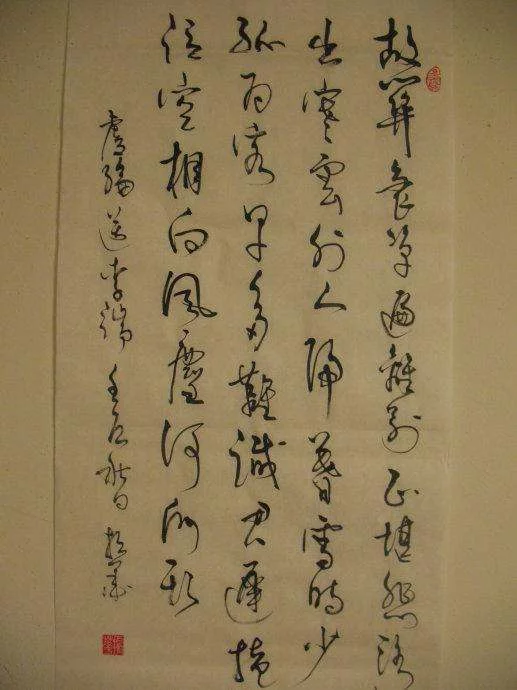 故關衰草遍離別正堪悲路
出寒雲外人歸暮雪時少
孤為客早多難識君遲掩
泣空相向風塵何所期
盧綸送李端 秋日